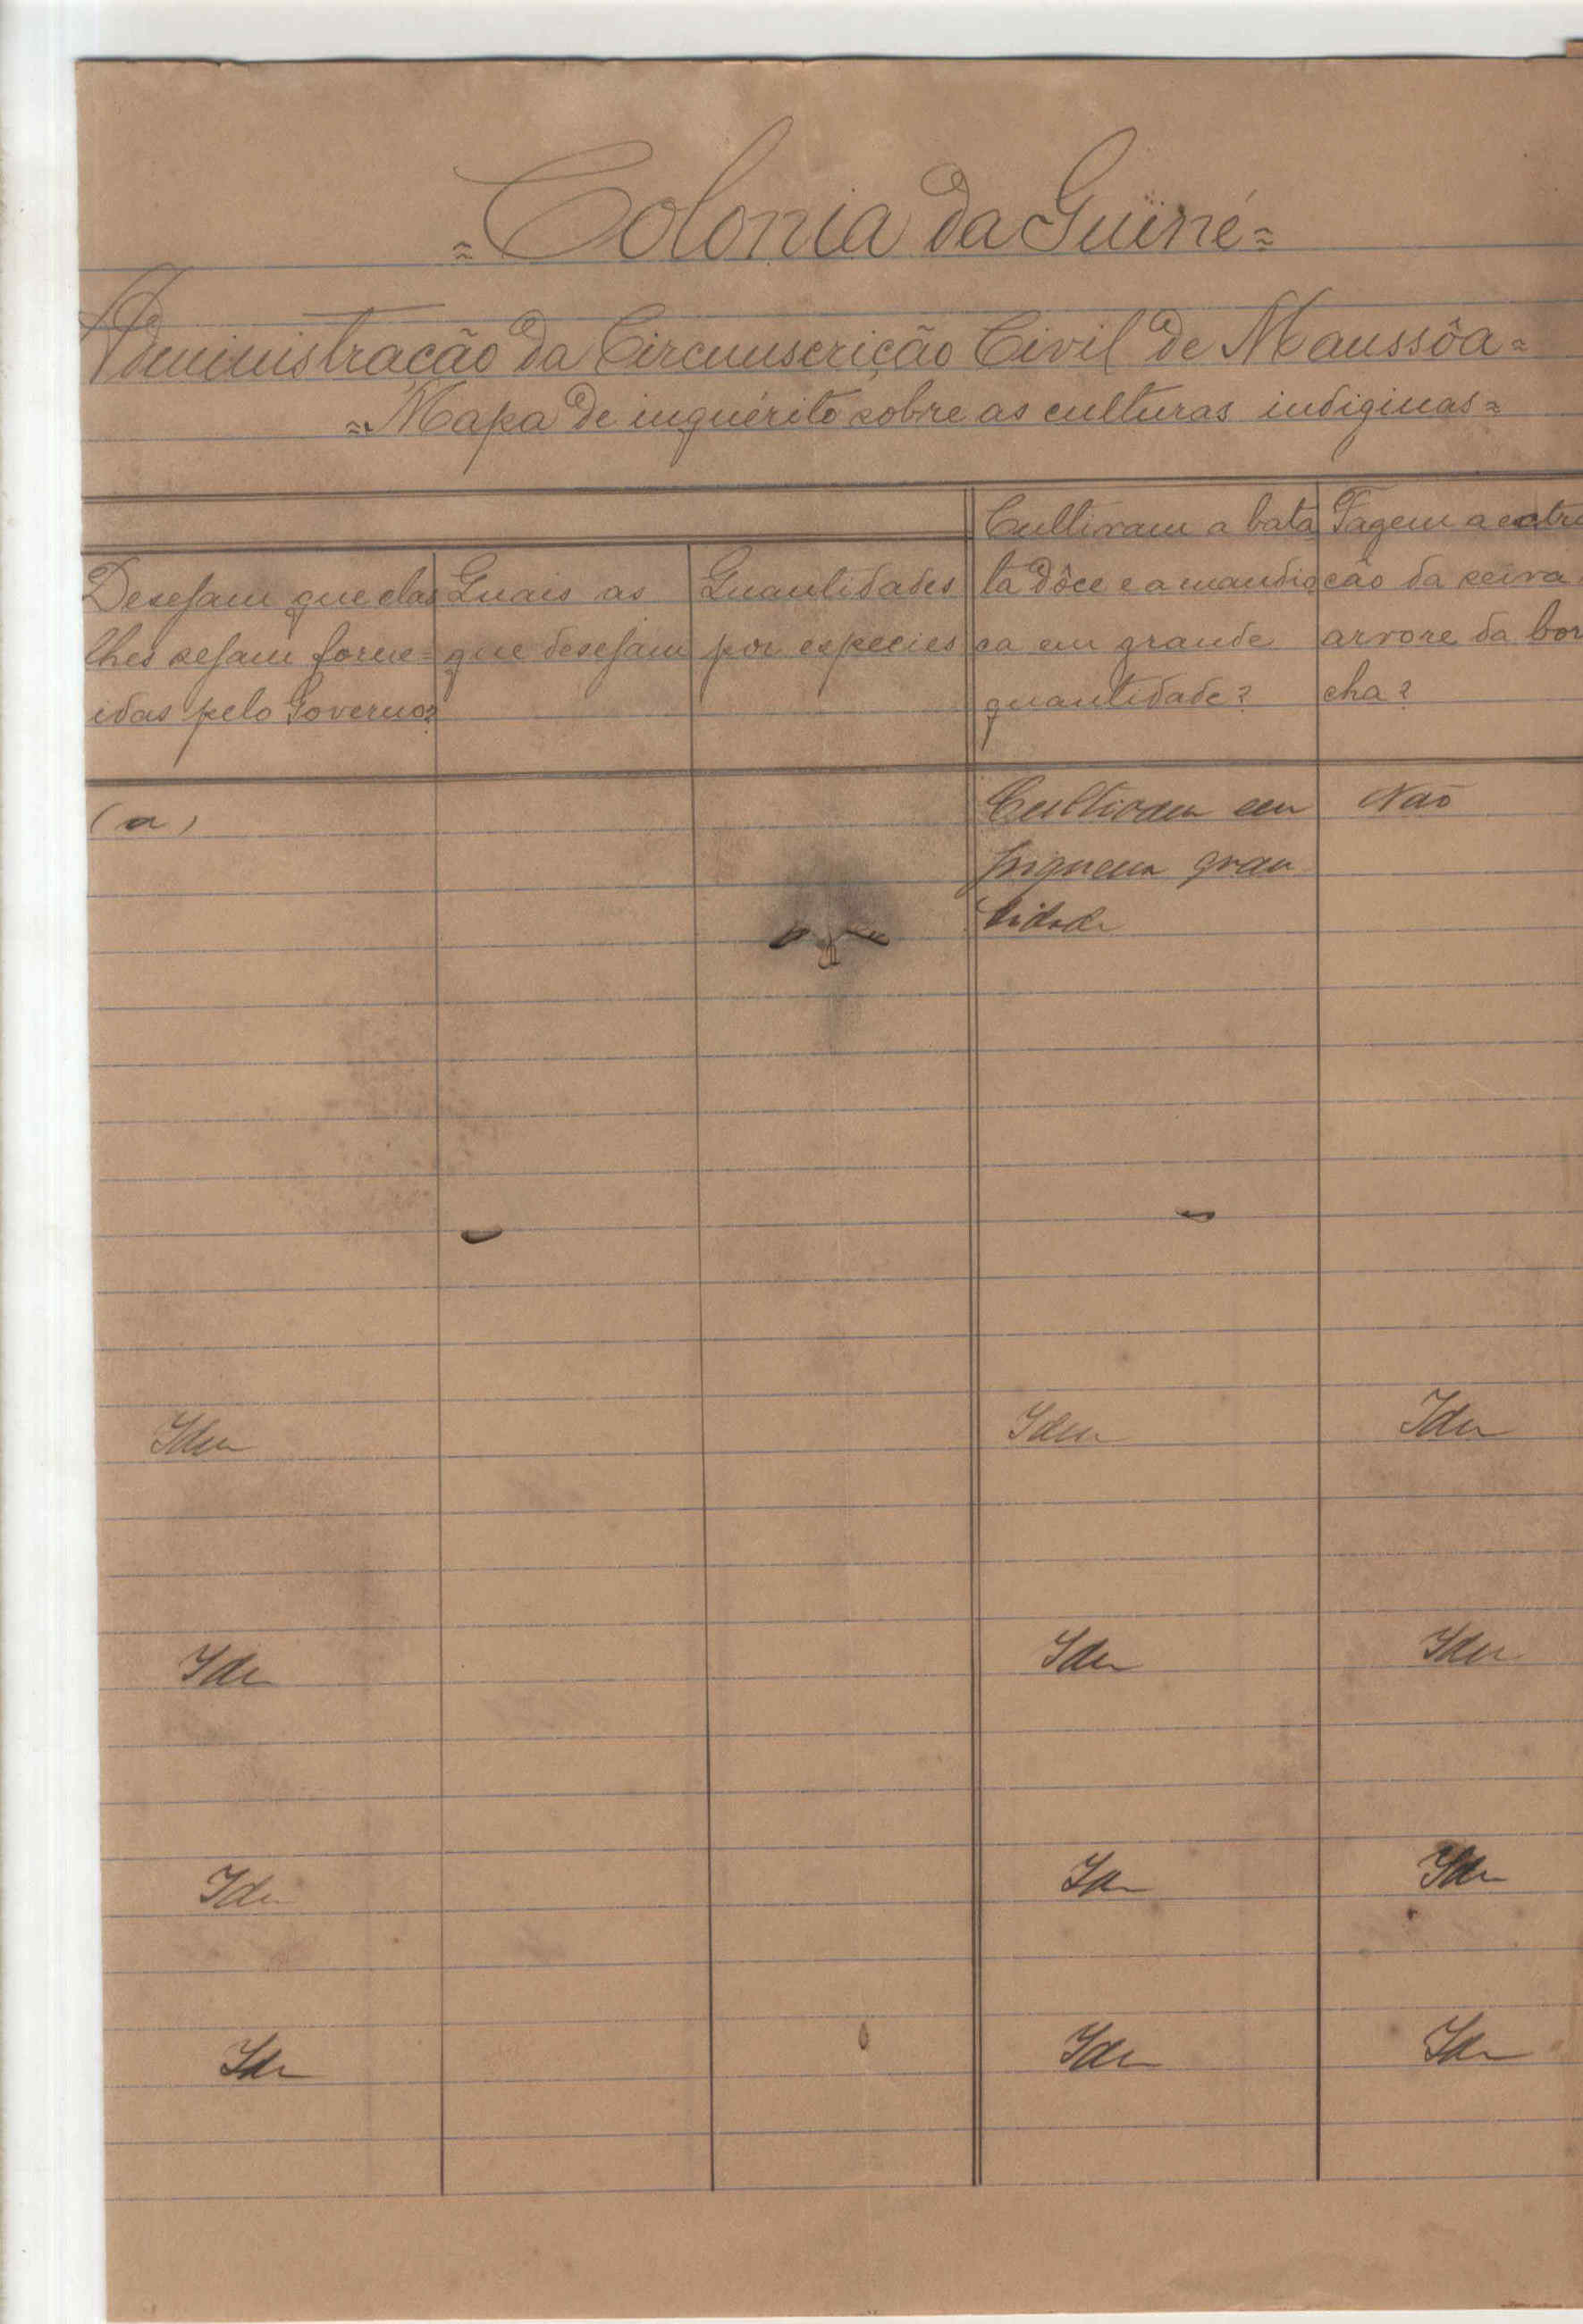 = Colonia da Guiné =
Administração da Circunscrição Civil de Manssôa =
= Mapa de inquérito sobre as culturas indiginas =
Desejam que elas
lhes sejam forne=
cidas pelo Governo?
Quais as
que desejam
Quantidades
por especies
Cultivam a bata
ta dôce e a mandio
ca em grande
quantidade?
Fazem a extra
cão da seiva
arvore da bor
cha?
(a)
Cultivam em
piquena quan
tidade
Não
Idem
Idem
Idem
Idem
Idem
Idem
Idem
Idem
Idem
Idem
Idem
Idem